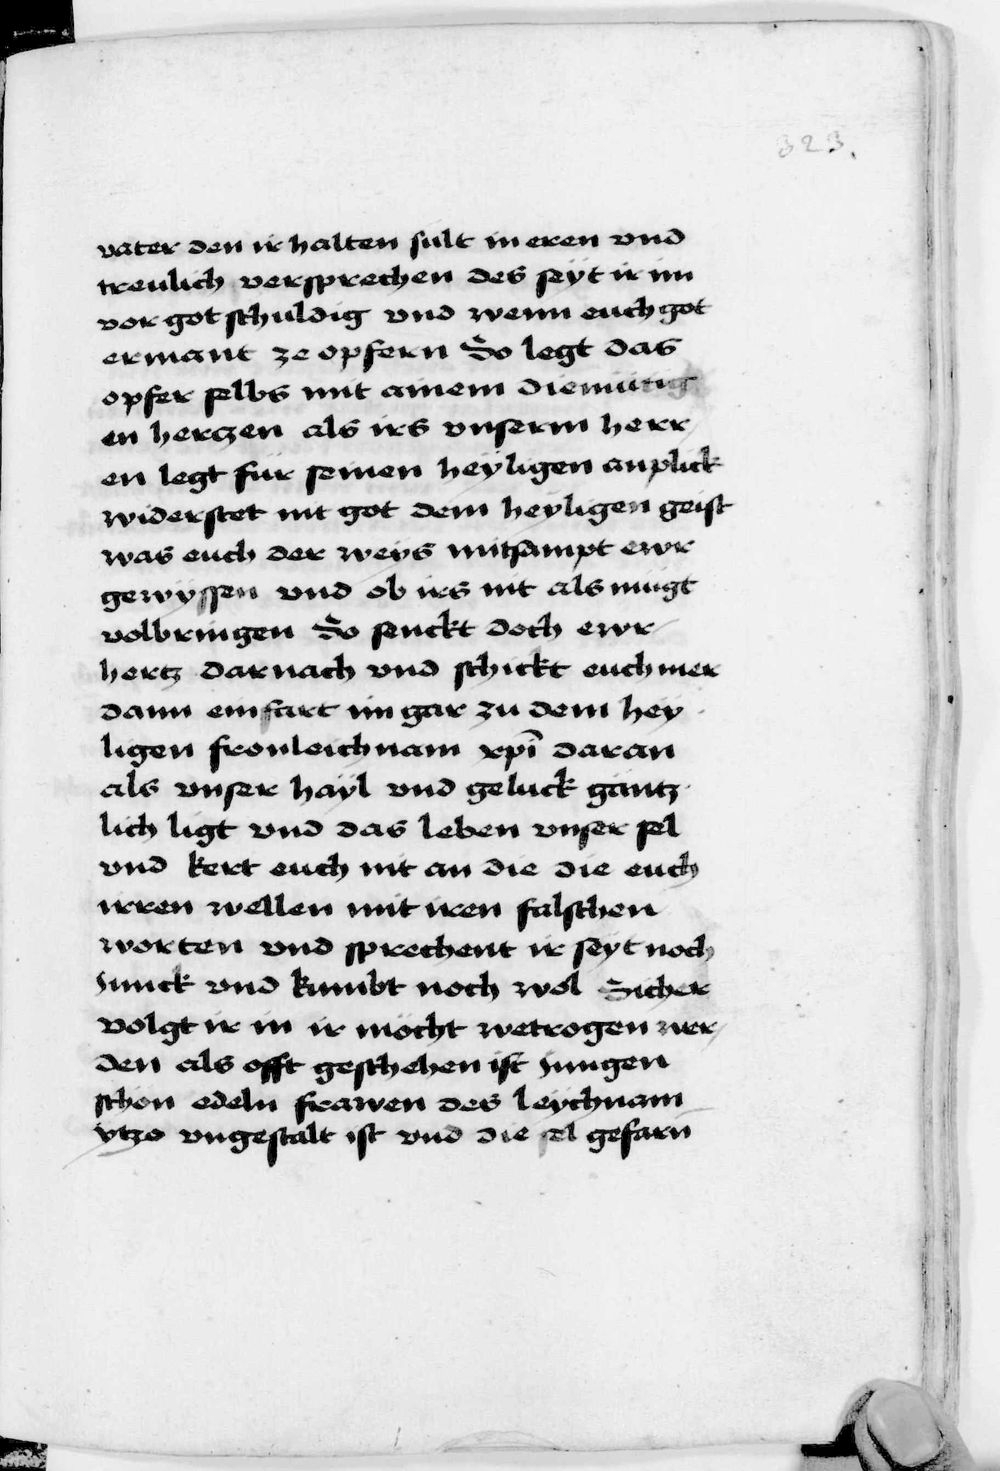 323.
vater den ir halten sult in eren vnd
treulich versprechen des seyt ir im
vor got schuldig vnd wenn euch got
ermant ze opfern So legt das
opfer selbs mit ainem diemütig
en hertzen als irs vnserm herr
en legt für seinen heyligen anplick
widerstet nit got dem heyligen geist
was euch der weys mitsampt ewr
gewyssen vnd ob irs nit als mügt
volbringen So senckt doch ewr
hertz darnach vnd schickt euch mer
dann ein fart im gar zu dem hey
ligen fronleichnam xpi daran
als vnser hayl vnd geluck gantz
lich ligt vnd das leben vnser sel
vnd kert euch nit an die die euch
irren wellen mit iren falschen
worten vnd sprechent ir seyt noch
junck vnd kumbt noch wol Sicher
volgt ir in ir möcht wetrogen wer
den als offt geschehen ist jungen
schon edeln frawen des leychnam
ytzo vngestalt ist vnd die sel gefarn